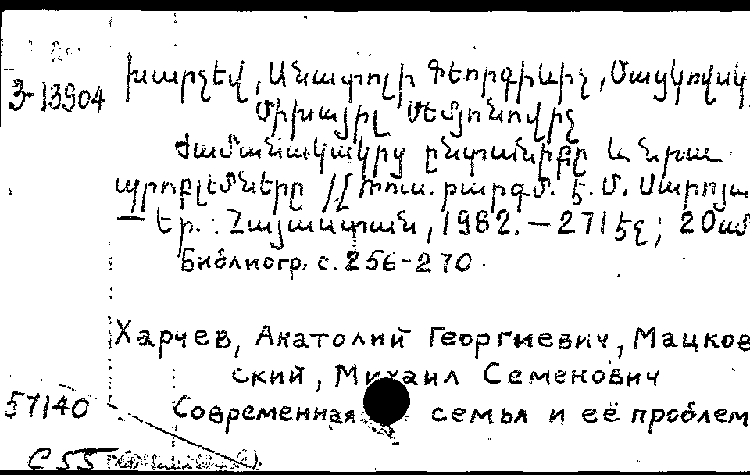 Խարչեվ, Անատոլի Գեորգիևիչ, Մացկովսկ
3-13904
Միխայիլ Սեմյոնովիչ
Ժամանակակից ընտանիքը և նրա
պրոբլեմները // Ռուս. թարգմ. Է. Մ. Սարոյա
— Եր.: Հայաստան, 1982. — 271 էջ; 20սմ
Библиогр. с. 256-270.
Харчев, Анатолий Георгиевич, Мацков
ский, Михаил Семенович
57140
Современная семья и её проблем
С55